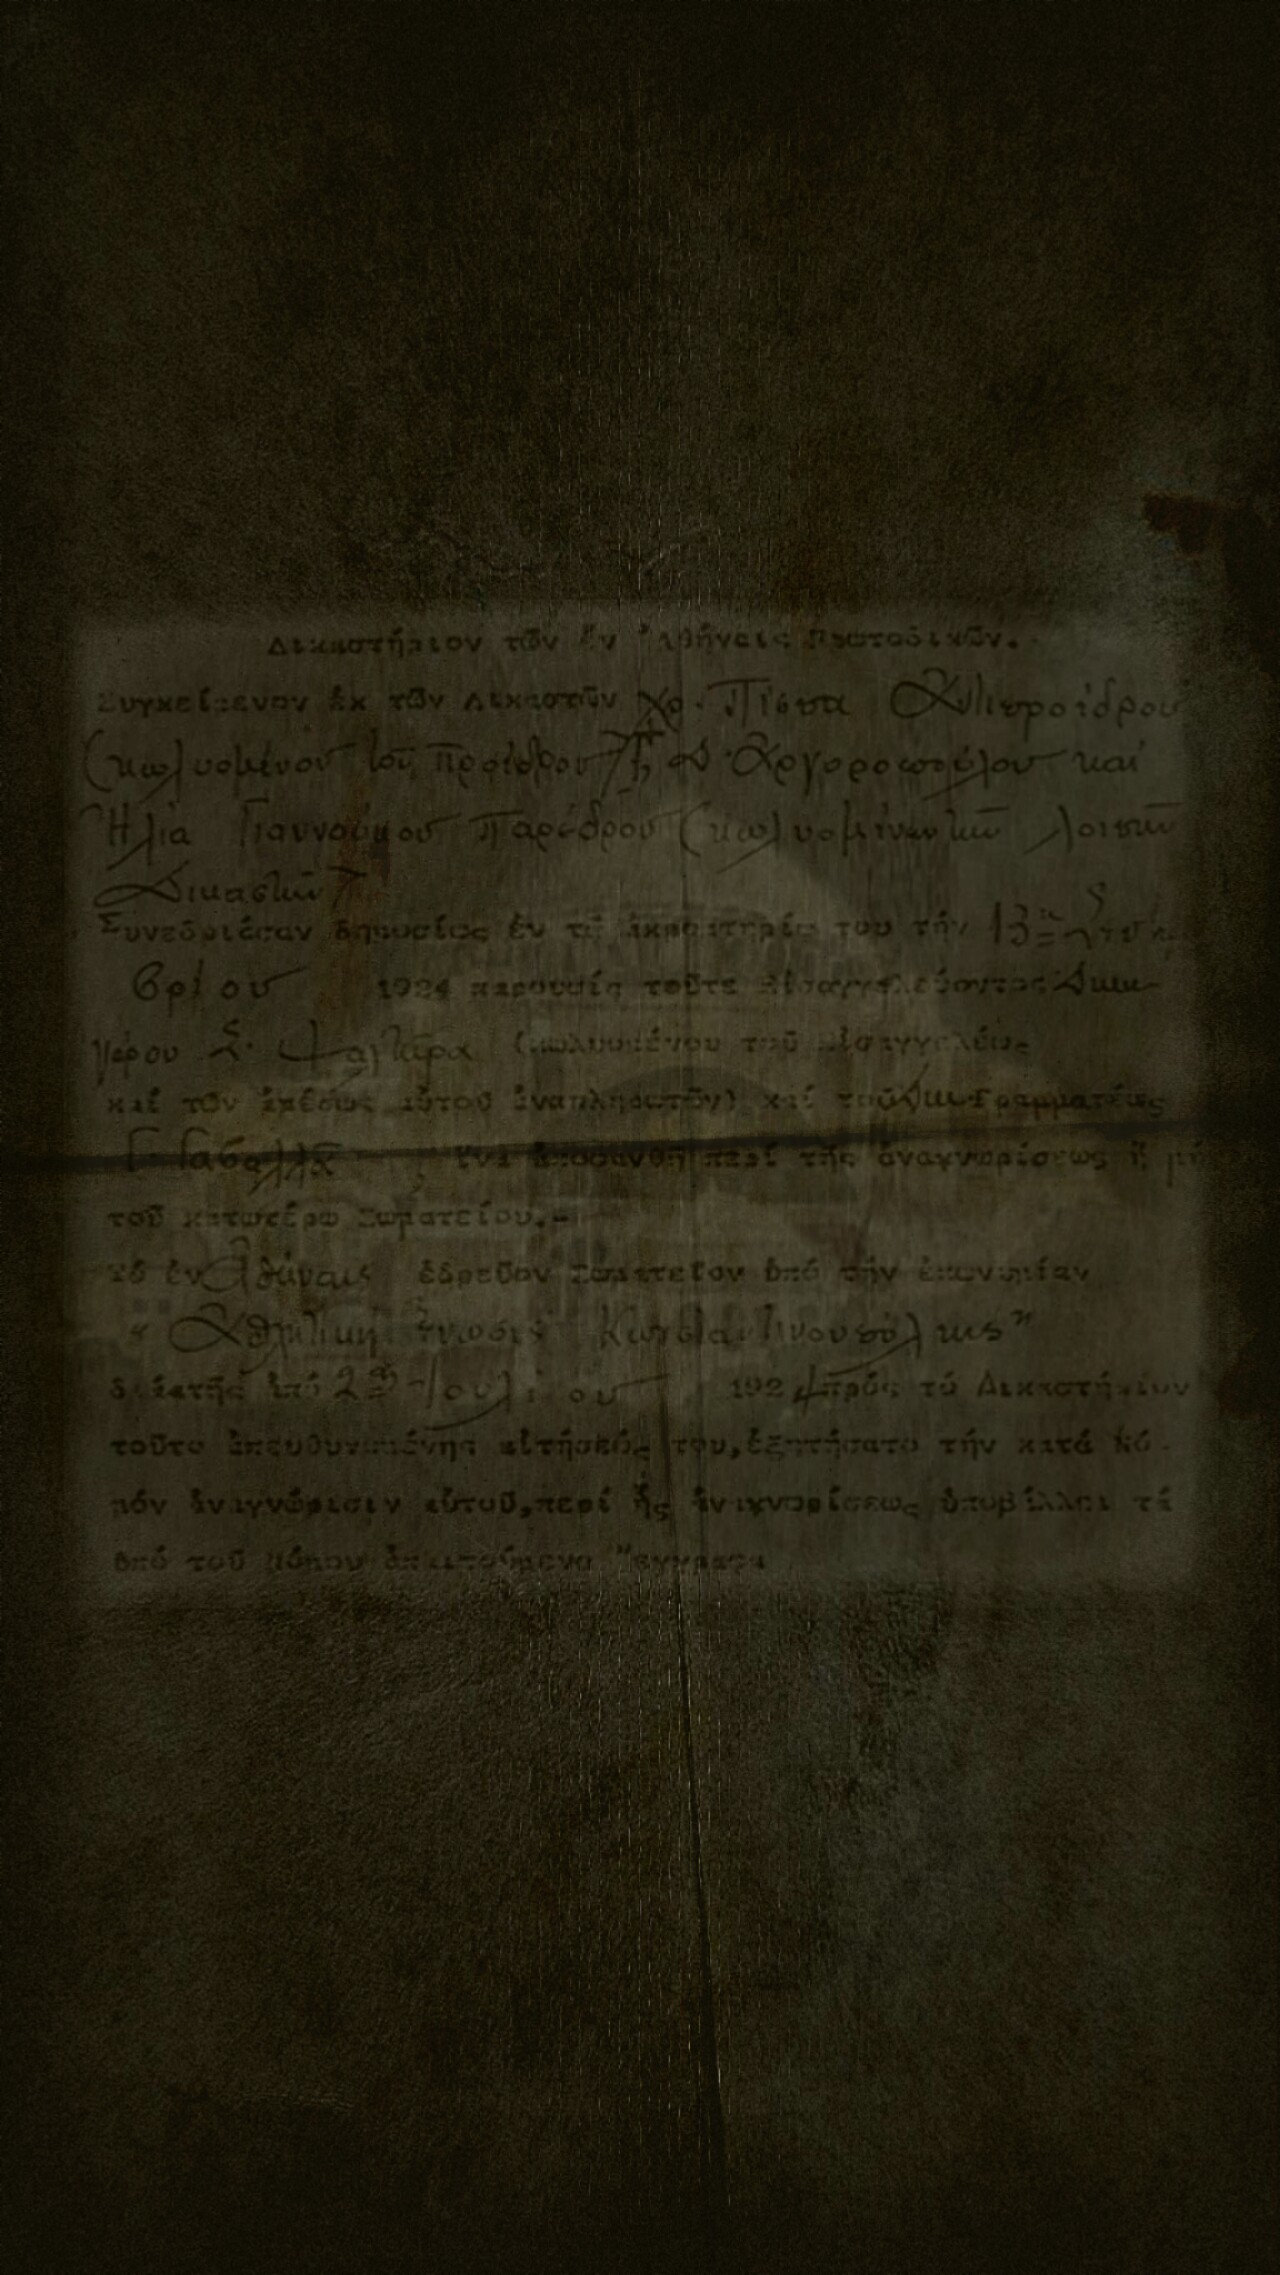 Δικαστήριον τῶν ἐν Ἀθήναις Πρωτοδικῶν.
Συγκείμενον ἐκ τῶν Δικαστῶν Χρ. Πίσπα Ἀντιπροέδρου
(κωλυομένου τοῦ Προέδρου) Δ. Ἀργυροπούλου καὶ
Ἠλία Γιαννούμου Παρέδρου (κωλυομένων τῶν λοιπῶν
Δικαστῶν)
Συνεδριάσαν δημοσίως ἐν τῷ ἀκροατηρίῳ του τήν 13
βρίου 1924 παρουσίᾳ τοῦτε Εἰσαγγελεύοντος
(κωλυομένου τοῦ Εἰσαγγελέως
καί τῶν ἀμέσως αὐτοῦ ἀναπληρωτῶν) καί τοῦ Γραμματέως
ἵνα ἀποφανθῇ περί τῆς ἀναγνωρίσεως ἤ μή
τοῦ κατωτέρω Σωματείου.-
Τό ἐν Ἀθήναις ἑδρεῦον Σωματεῖον ὑπό τήν ἐπωνυμίαν
"Ἀθλητικὴ Ἕνωσις Κωνσταντινουπόλεως"
διά τῆς ἀπό 2 Ἰουλίου 1924 πρός τό Δικαστήριον
τοῦτο ἀπευθυνομένης αἰτήσεώς του, ἐξητήσατο τήν κατά Νό-
μόν ἀναγνώρισιν αὐτοῦ, περί ἧς ἀναγνωρίσεως ὑποβάλλει τά
ὑπό τοῦ Νόμου ἀπαιτούμενα ἔγγραφα